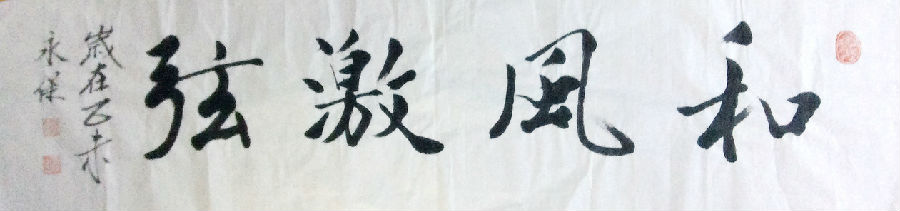 和风激弦
岁在乙未
永保